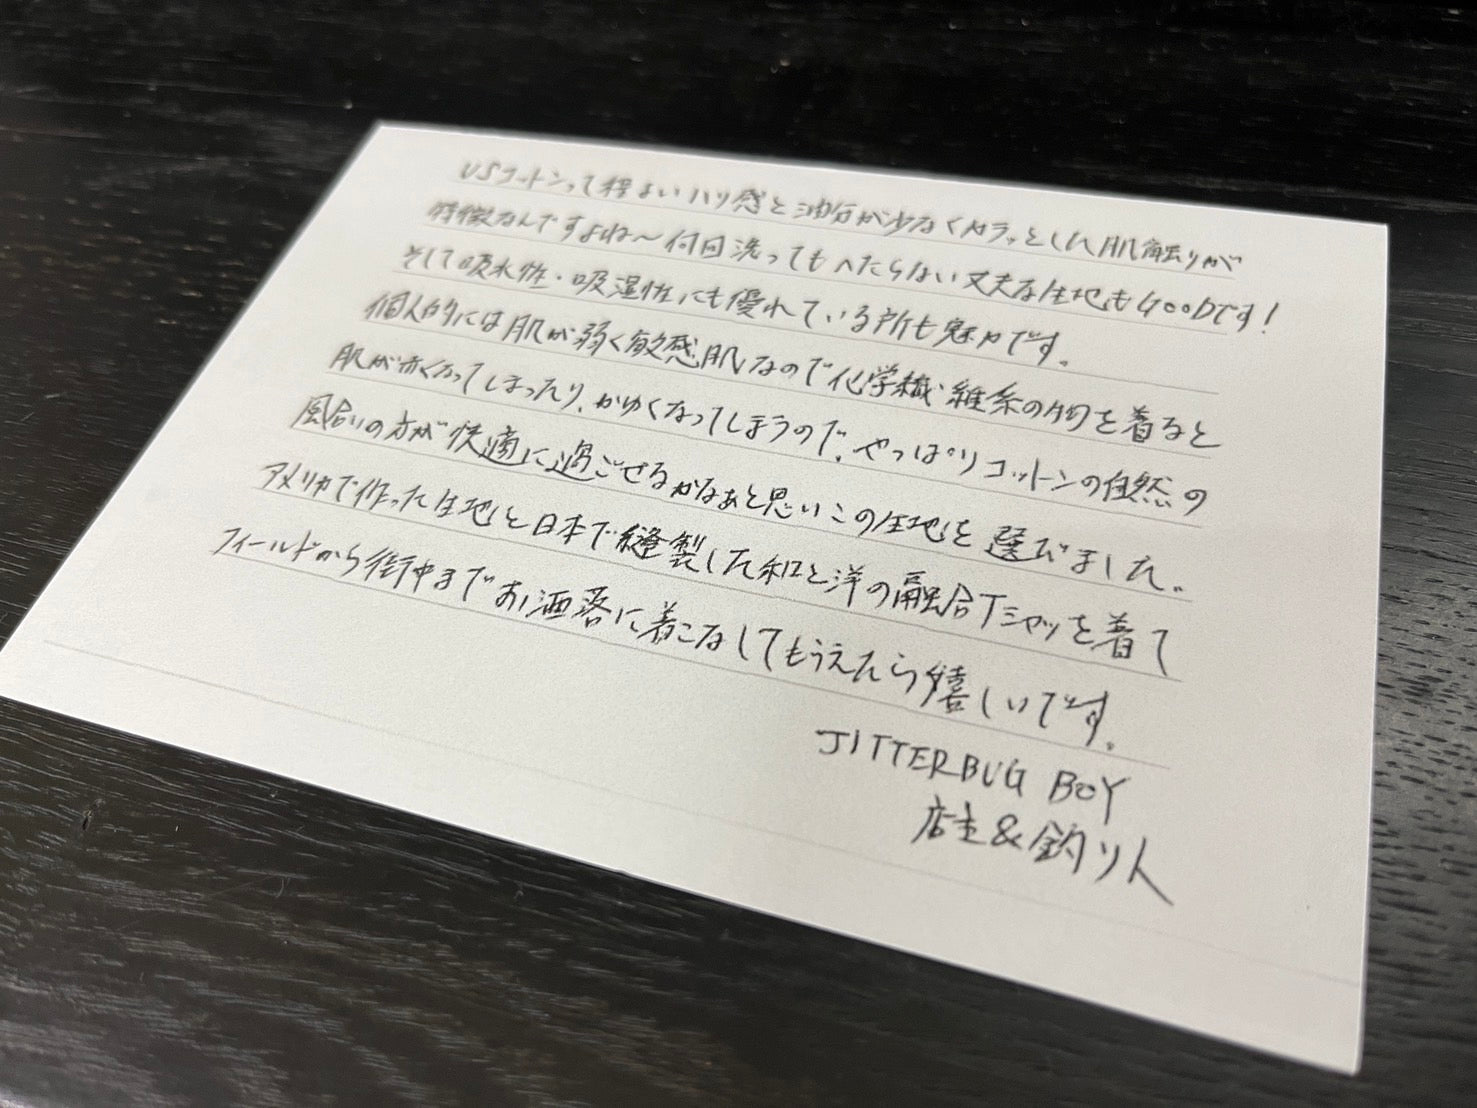 USコットンって程よいハリ感と油分が少なくカラッとした肌触りが
特徴なんですよね～何回洗ってもへたらない丈夫な生地もGOODです!
そして吸水性・吸湿性にも優れている所も魅力です。
個人的には肌が弱く敏感肌なので化学繊維系の物を着ると
肌が赤くなってしまったり、かゆくなってしまうので、やっぱりコットンの自然の
風合いの方が快適に過ごせるかなぁと思いこの生地を選びました。
アメリカで作った生地と日本で縫製した和と洋の融合Tシャツを着て
フィールドから街中までお洒落に着こなしてもらえたら嬉しいです。
JITTERBUG BOY
店主&釣り人